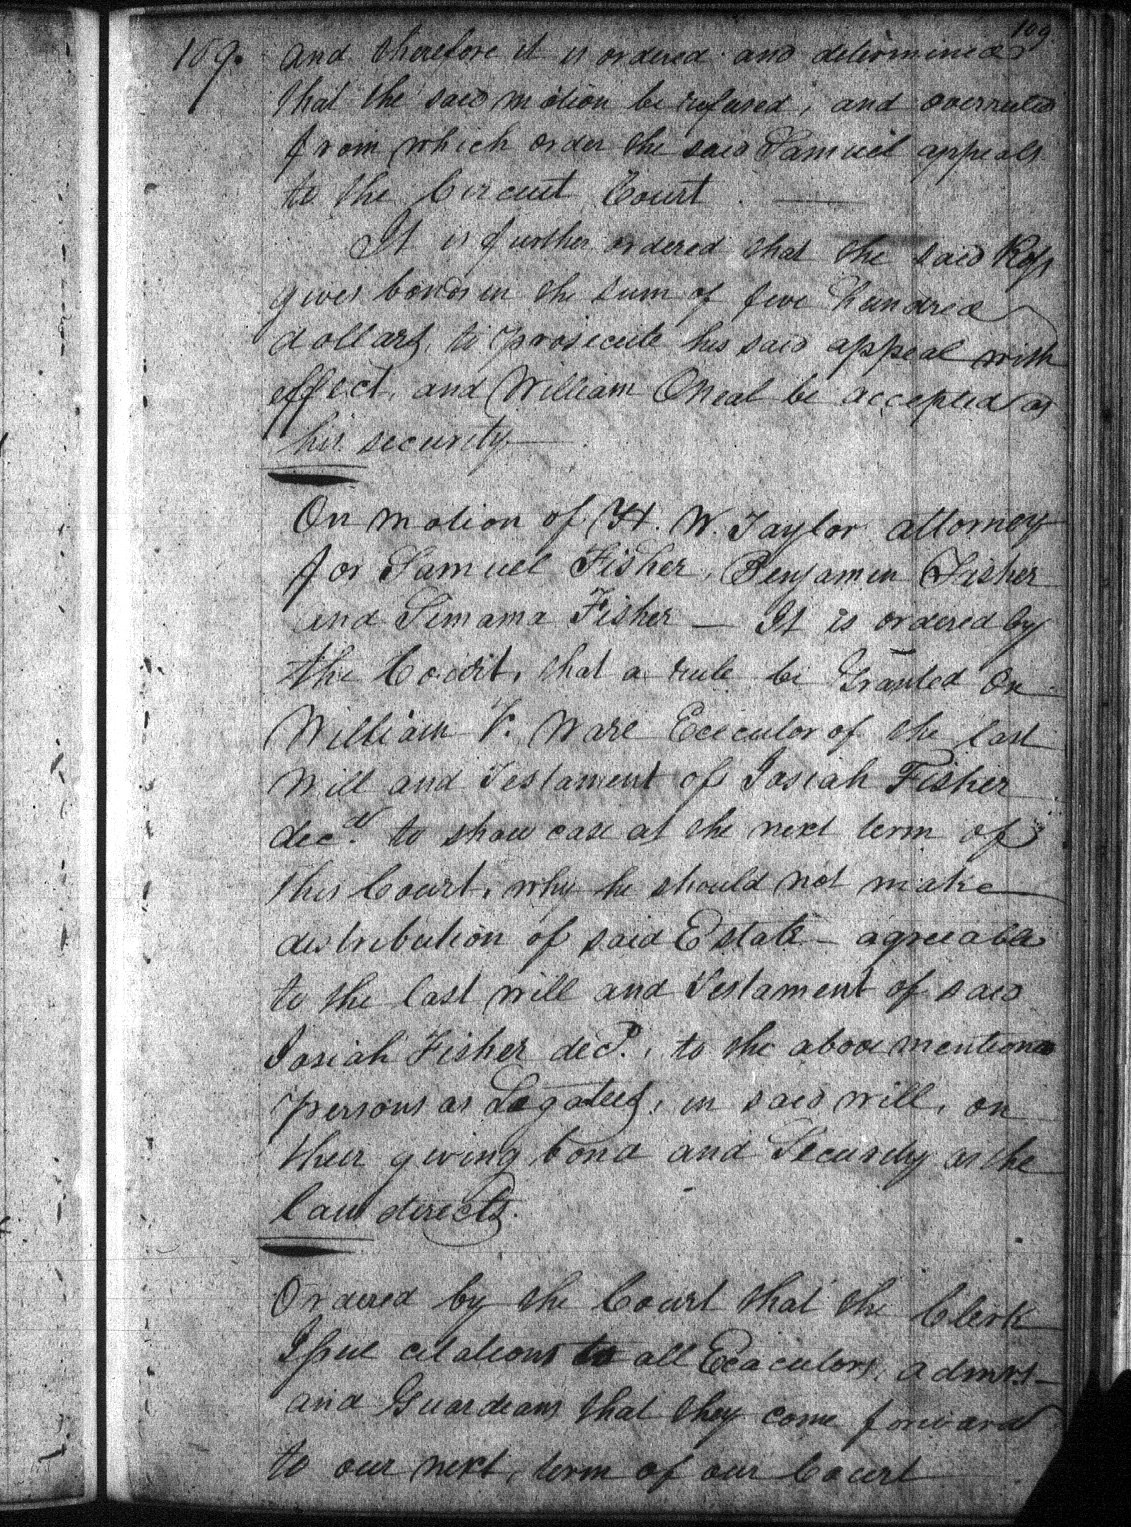 109
109. and therefore it is ordered and determined
that the said motion be refused, and overruled
from which order the said Samuel appeals
to the Circuit Court. —
It is further ordered that the said Ross
gives bonds in the sum of five hundred
dollars, to prosecute his said appeal with
effect, and William Oneal be accepted as
his security —
On motion of H. W. Taylor attorney
for Samuel Fisher, Benjamin Fisher
and Fisher — It is ordered by
the Court, that a rule be Granted on
William V. Ware Executor of the last
Will and Testament of Josiah Fisher
decd. to show case at the next term of
this Court, why he should not make
distribution of said Estate — agreeable
to the last will and Testament of said
Josiah Fisher decd., to the above mentioned
persons as Legatees, in said will, on
their giving bond and Security as the
law directs.
Ordered by the Court that the Clerk
Issue citations to all Executors, admrs —
and Guardians that they come forward
to our next, term of our Court